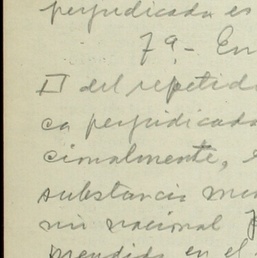 perjudicada es
7º.- En
II del repetid
ca perjudicad
cionalmente,
substancia
nacional
en el